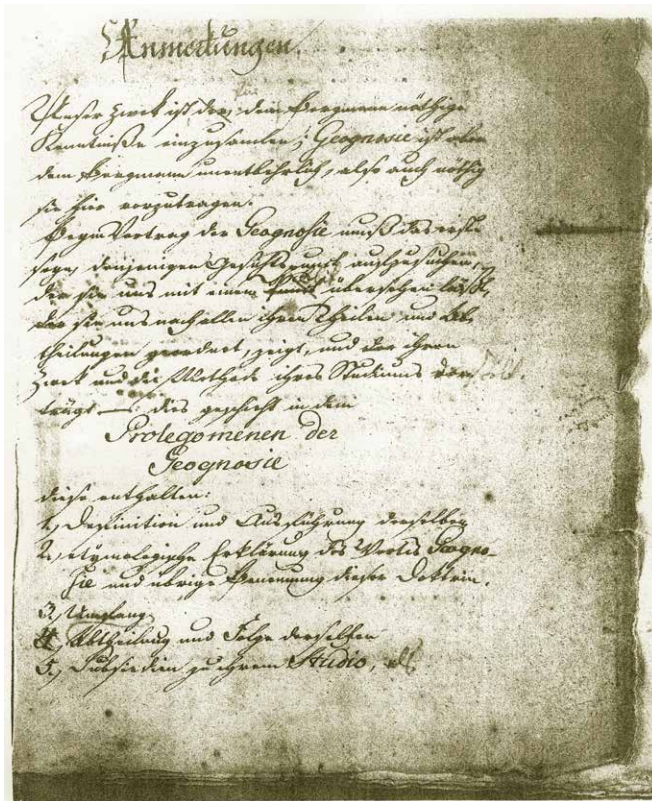 Anmerkungen.
Unser Zwek ist der, dem Bergmann nöthige
Kenntniße einzusamlen; Geognosie ist aber
dem Bergmann unentbehrlich, also auch nöthig
sie hier vorzutragen.
Beym Vortrag der Geognosie muß das erste
seyn, denjenigen Gesichtspunkt aufzusuchen,
der sie uns mit einem übersehen läßt,
der sie uns nach allen ihren Theilen und Ab-
theilungen geordnet, zeigt, und der ihren
Zwek und die Methode ihres Studiums vor-
trägt — dies geschieht in dem
Prolegomenen der
Geognosie
diese enthalten:
1, Definition und Ausführung derselben
2, etymologische Erklärung des Wortes Geogno-
sie und übrige Benennung dieser Doktrin.
3, Umfang
4, Abtheilung und Folge derselben
5, Subsidien zu ihrem Studio, als